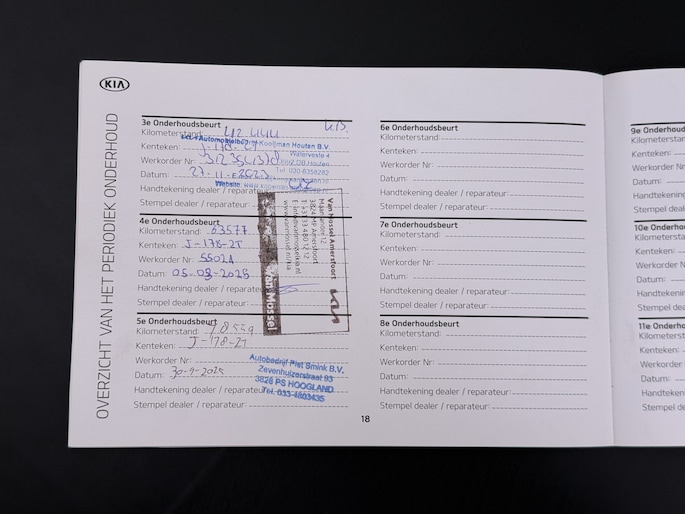 KIA
OVERZICHT VAN HET PERIODIEK ONDERHOUD
3e Onderhoudsbeurt
Kilometerstand: 42 444
Kooijman Houten B.V.
Kenteken: J-178-ZT
Waterveste 4
Werkorder Nr:
Tel. 030-6358282
Datum: 27-11-2023
Website:
Handtekening dealer / reparateur:
Stempel dealer / reparateur:
4e Onderhoudsbeurt
Kilometerstand: 63577
Kenteken: J-178-ZT
Werkorder Nr: 55021
Datum:
Handtekening dealer / reparateur:
Stempel dealer / reparateur:
Van Mossel Amersfoort
Maanlander 12
3824 MP Amersfoort
T +31 33 480 12 12
www.vanmossel.nl/kia
KIA
Van Mossel
5e Onderhoudsbeurt
Kilometerstand: 78559
Kenteken: J-178-ZT
Werkorder Nr:
Datum: 30-7-2025
Handtekening dealer / reparateur:
Stempel dealer / reparateur:
Autobedrijf Piet Smink B.V.
Zevenhuizerstraat 93
3828 PS HOOGLAND
Tel. 033-4803435
6e Onderhoudsbeurt
Kilometerstand:
Kenteken:
Werkorder Nr:
Datum:
Handtekening dealer / reparateur:
Stempel dealer / reparateur:
7e Onderhoudsbeurt
Kilometerstand:
Kenteken:
Werkorder Nr:
Datum:
Handtekening dealer / reparateur:
Stempel dealer / reparateur:
8e Onderhoudsbeurt
Kilometerstand:
Kenteken:
Werkorder Nr:
Datum:
Handtekening dealer / reparateur:
Stempel dealer / reparateur:
18
9e Onderhoud
Kilometerst
Kenteken:
Werkorder
Datum:
Handtekeni
Stempel de
10e Onderho
Kilometerst
Kenteken:
Werkorder
Datum:
Handtekenin
Stempel de
11e Onderho
Kilometerst
Kenteken:
Werkorder N
Datum:
Handteken
Stempel de